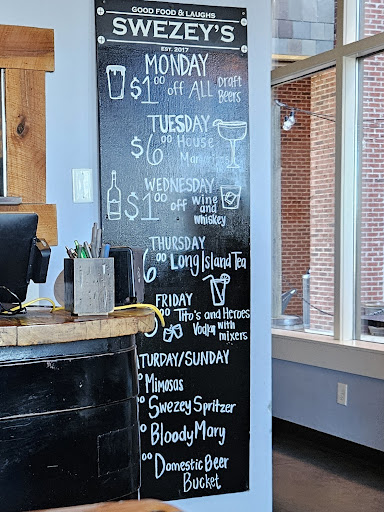 GOOD FOOD & LAUGHS
SWEZEY'S
EST. 2017
MONDAY
$1.00 off ALL Draft
Beers
TUESDAY
$6.00 House
Margaritas
WEDNESDAY
$1.00 off wine
and
whiskey
THURSDAY
6.00 Long Island Tea
FRIDAY
Tito's and Heroes
Vodka with
mixers
TURDAY/SUNDAY
Mimosas
Swezey Spritzer
Bloody Mary
Domestic Beer
Bucket